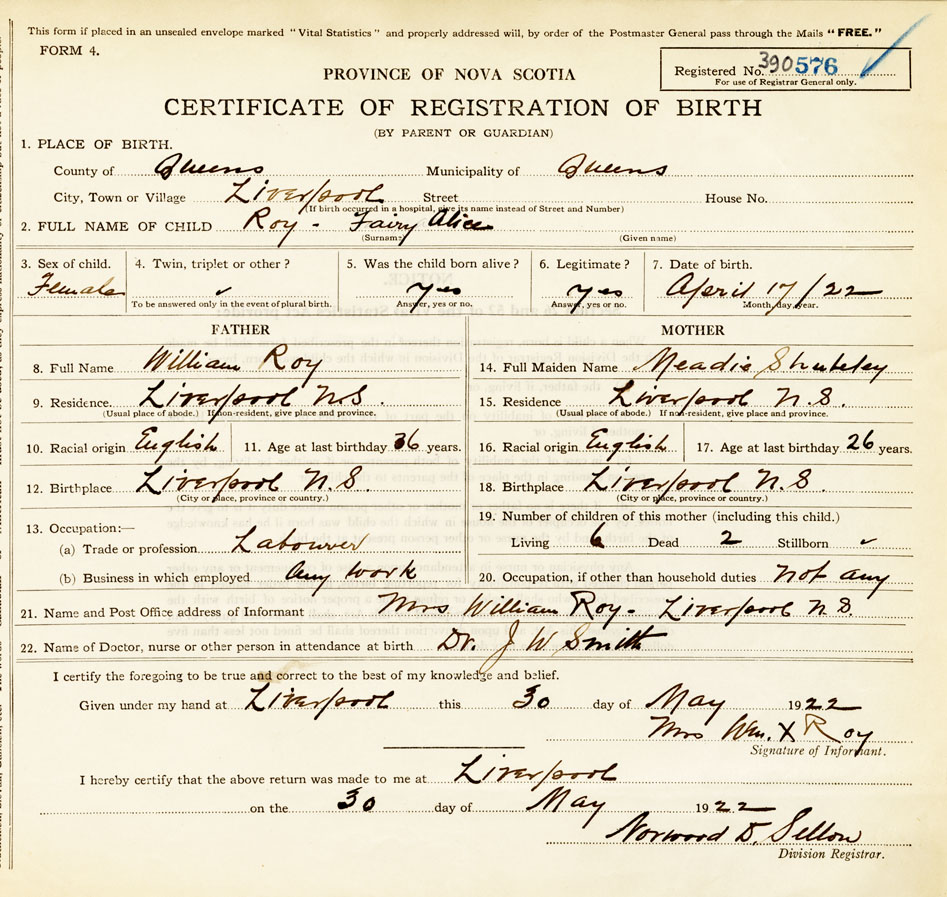 This form if placed in an unsealed envelope marked "Vital Statistics" and properly addressed will, by order of the Postmaster General pass through the Mails "FREE."
FORM 4.
Registered No. 390576
For use of Registrar General only.
PROVINCE OF NOVA SCOTIA
CERTIFICATE OF REGISTRATION OF BIRTH
(BY PARENT OR GUARDIAN)
1. PLACE OF BIRTH.
County of Queens Municipality of Queens
City, Town or Village Liverpool Street House No.
(If birth occurred in a hospital, give its name instead of Street and Number)
2. FULL NAME OF CHILD Roy - Fairy Alice
(Surname) (Given name)
3. Sex of child. 4. Twin, triplet or other? 5. Was the child born alive? 6. Legitimate? 7. Date of birth.
Female ✓ yes yes April 17/22
To be answered only in the event of plural birth. Answer, yes or no. Answer, yes or no. Month, day, year.
FATHER MOTHER
8. Full Name William Roy 14. Full Maiden Name Meadie
9. Residence. Liverpool N.S. 15. Residence Liverpool N.S.
(Usual place of abode.) If non-resident, give place and province. (Usual place of abode.) If non-resident, give place and province.
10. Racial origin English 11. Age at last birthday 36 years. 16. Racial origin English 17. Age at last birthday 26 years.
12. Birthplace Liverpool N.S. 18. Birthplace Liverpool N.S.
(City or place, province or country.) (City or place, province or country.)
13. Occupation:— 19. Number of children of this mother (including this child.)
(a) Trade or profession Labourer Living 6 Dead 2 Stillborn ✓
(b) Business in which employed Any work 20. Occupation, if other than household duties not any
21. Name and Post Office address of Informant Mrs William Roy - Liverpool N.S.
22. Name of Doctor, nurse or other person in attendance at birth Dr. J W Smith
I certify the foregoing to be true and correct to the best of my knowledge and belief.
Given under my hand at Liverpool this 30 day of May 1922
Mrs Wm. X Roy
Signature of Informant.
I hereby certify that the above return was made to me at Liverpool
on the 30 day of May 1922
Norwood D. Sellon
Division Registrar.